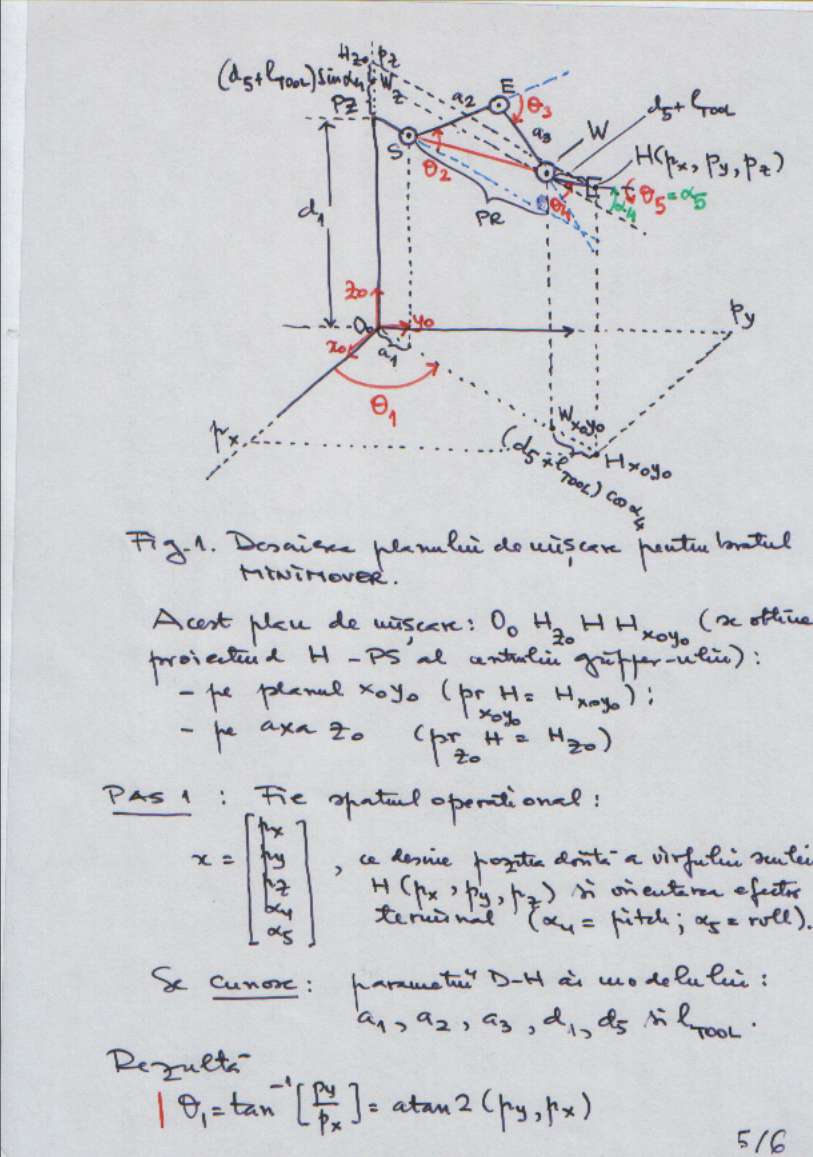 Hz₀ pz
(d₅+l_TOOL) sin α₄ Wz
PZ
E
a₂
θ₃
d₅+l_TOOL
a₃
W
S
H(px, py, pz)
θ₂
θ₄
α₄
θ₅=α₅
PR
d₁
z₀
O₀
y₀
py
x₀
a₁
θ₁
px
Wx₀y₀
Hx₀y₀
(d₅+l_TOOL) cos α₄
Fig.1. Descrierea planului de mișcare pentru brațul
MINIMOVER.
Acest plan de mișcare: O₀ Hz₀ H Hx₀y₀ (se obține
proiectînd H - PS al centrului gripper-ului):
- pe planul x₀y₀ (pr x₀y₀ H = Hx₀y₀);
- pe axa z₀ (pr z₀ H = Hz₀)
PAS 1 : Fie spațiul operațional:
x = [px py pz α₄ α₅] , ce descrie poziția dorită a vîrfului sculei
H(px, py, pz) și orientarea efector
terminal (α₄ = pitch; α₅ = roll).
Se cunosc: parametrii D-H ai modelului:
a₁, a₂, a₃, d₁, d₅ și l_TOOL.
Rezultă
θ₁ = tan⁻¹ [py/px] = atan2 (py, px)
5/6